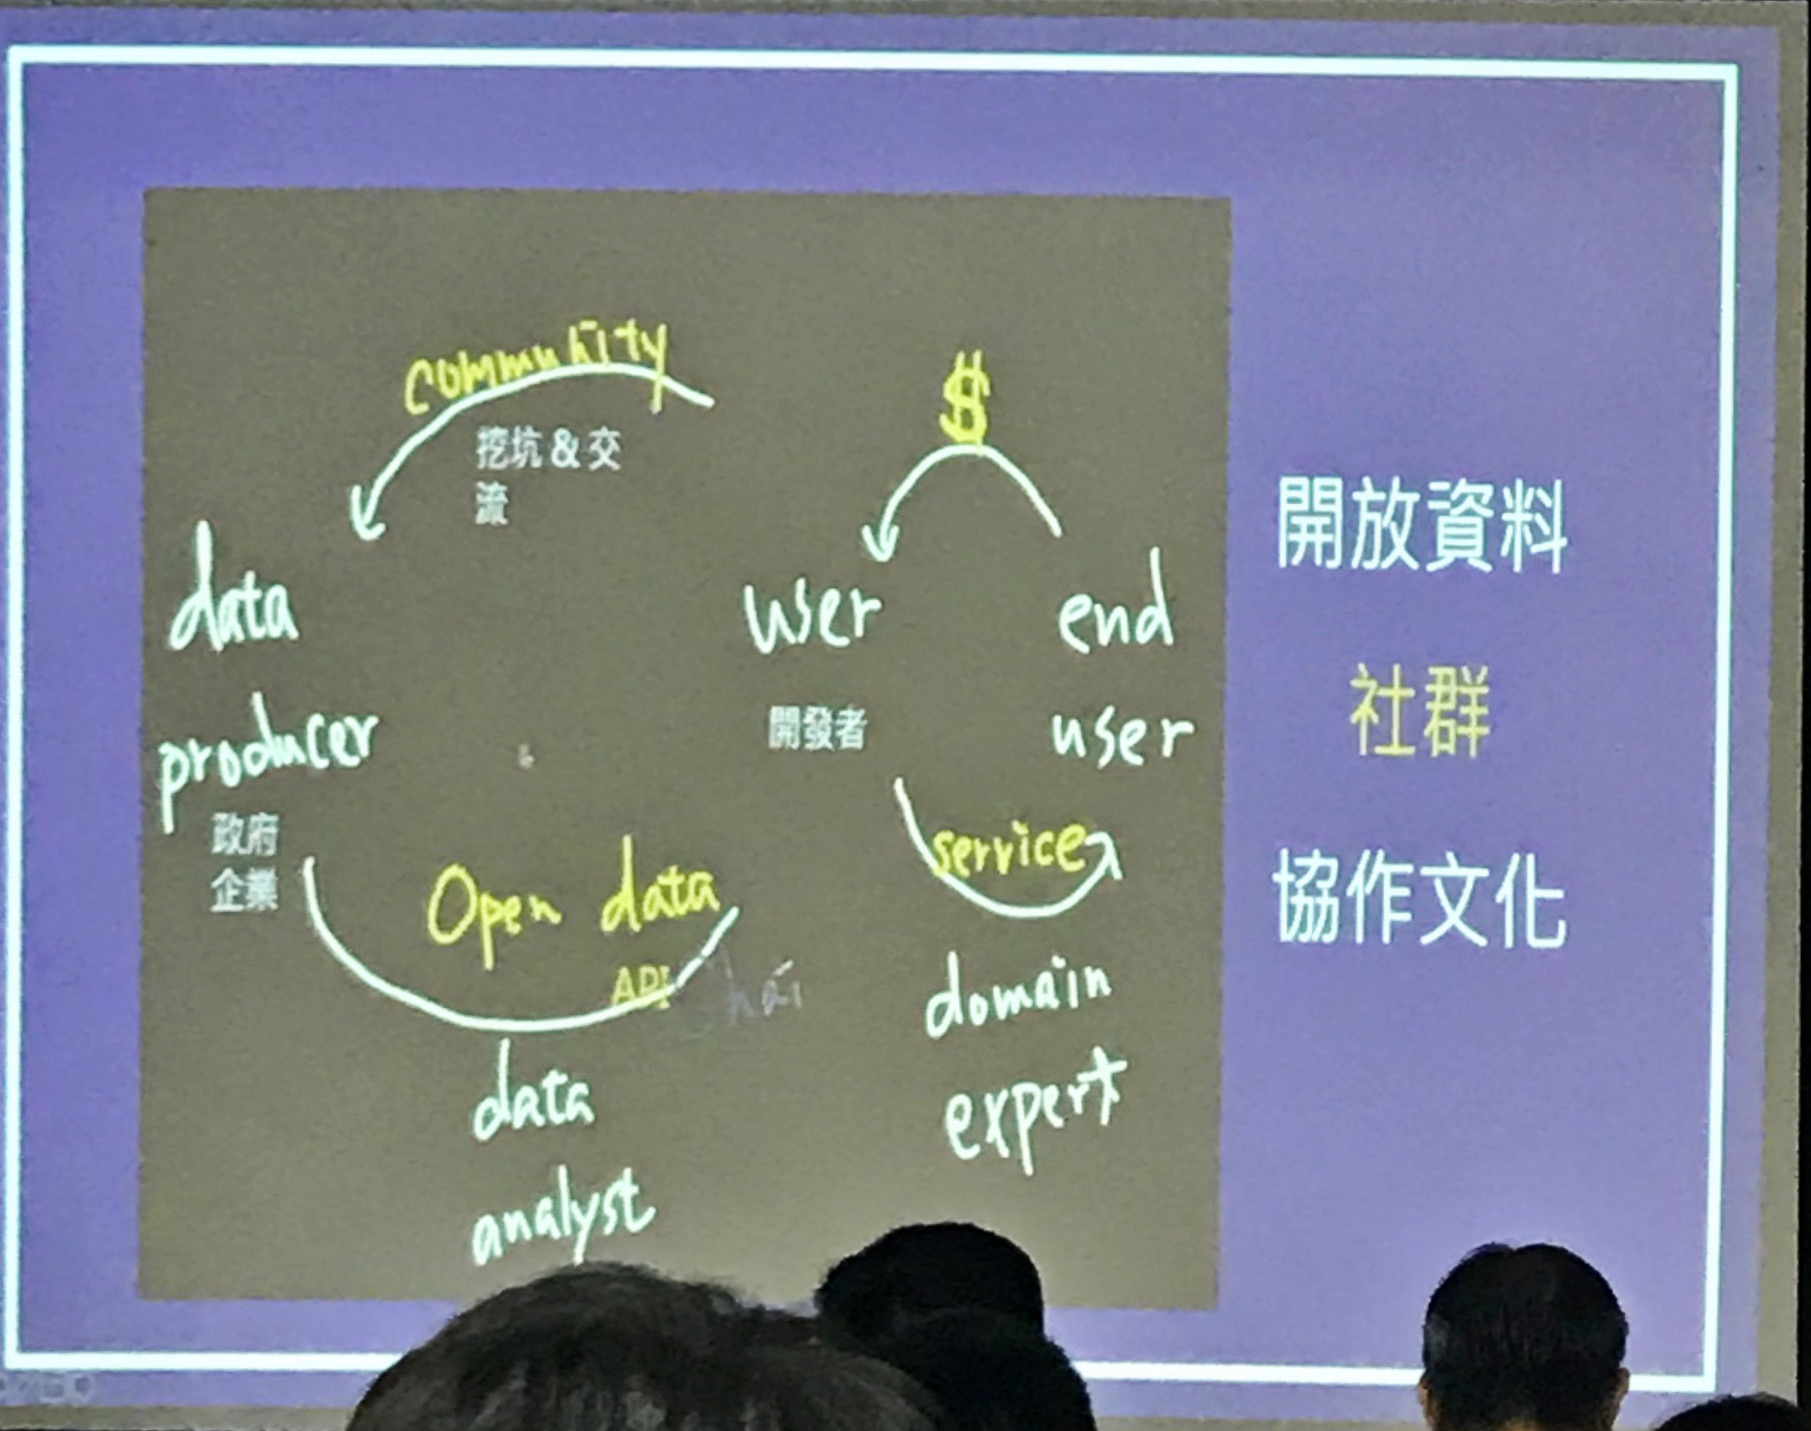 community
挖坑 & 交
流
$
data
producer
政府
企業
user
開發者
end
user
Open data
API
service
data
analyst
domain
expert
開放資料
社群
協作文化